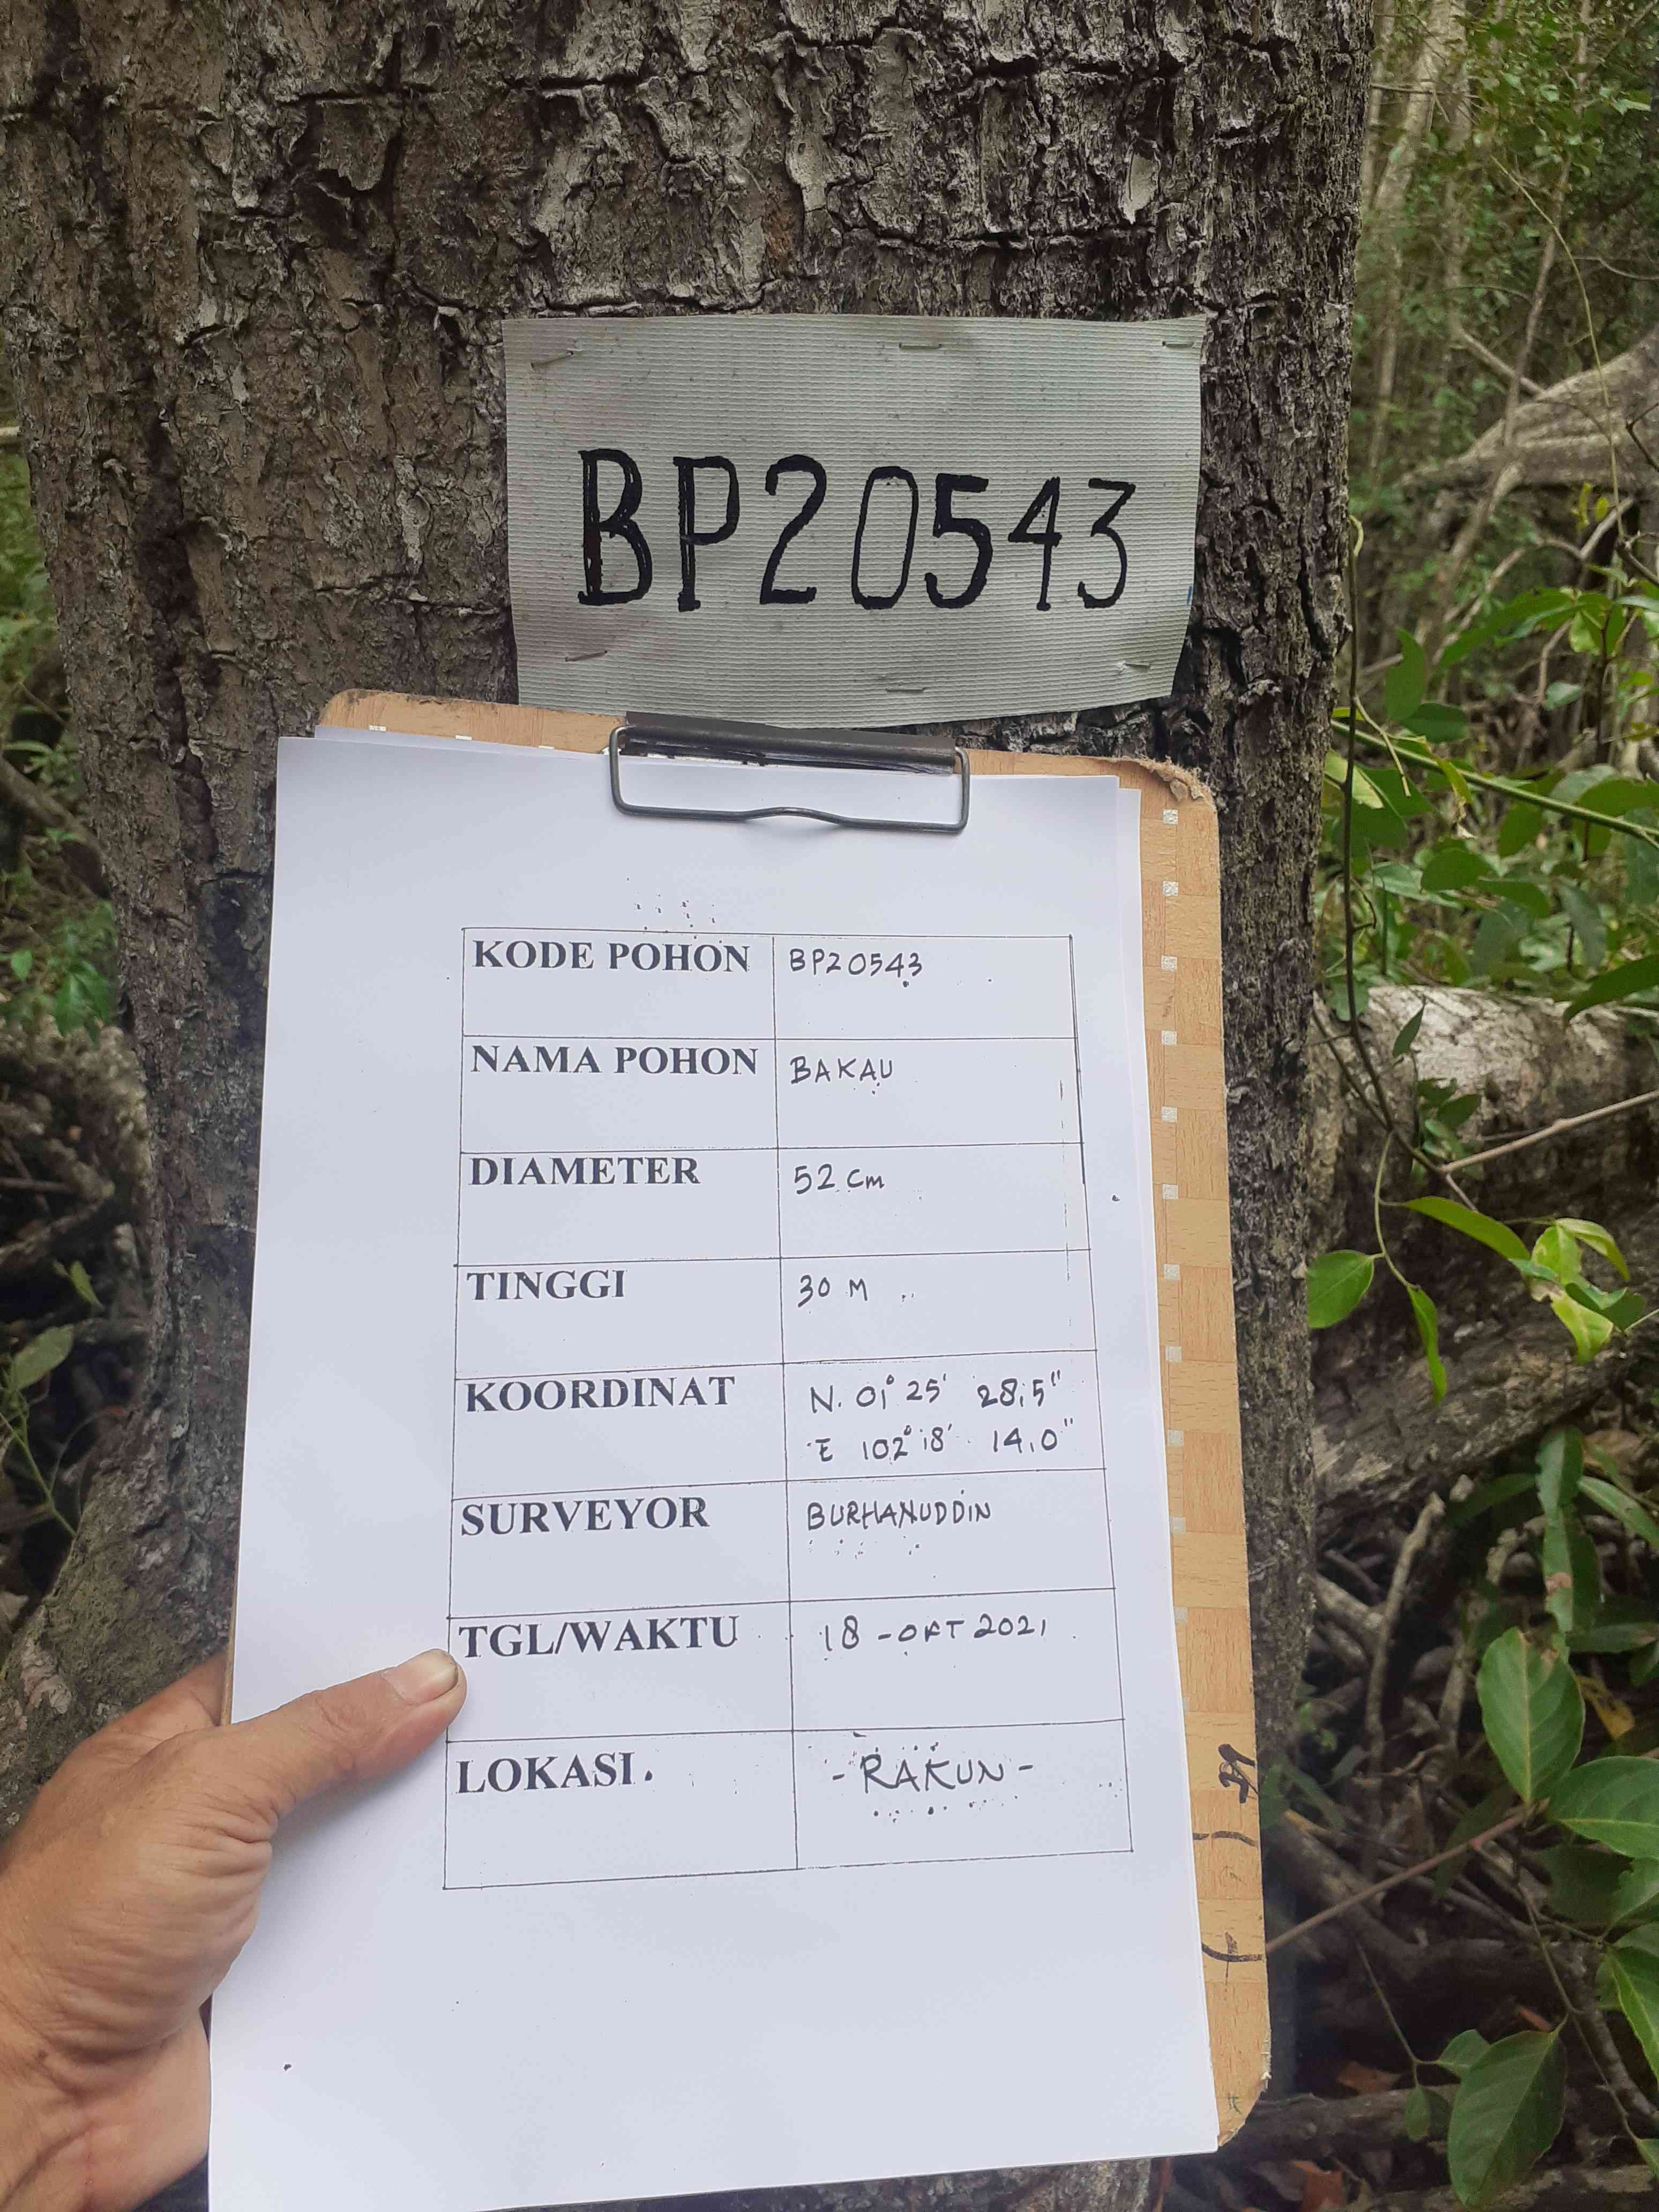 BP20543
KODE POHON BP20543
NAMA POHON BAKAU
DIAMETER 52 Cm
TINGGI 30 M
KOORDINAT N. 01° 25' 28,5"
E 102° 18' 14,0"
SURVEYOR BURHANUDDIN
TGL/WAKTU 18 - OKT 2021
LOKASI. - RAKUN -